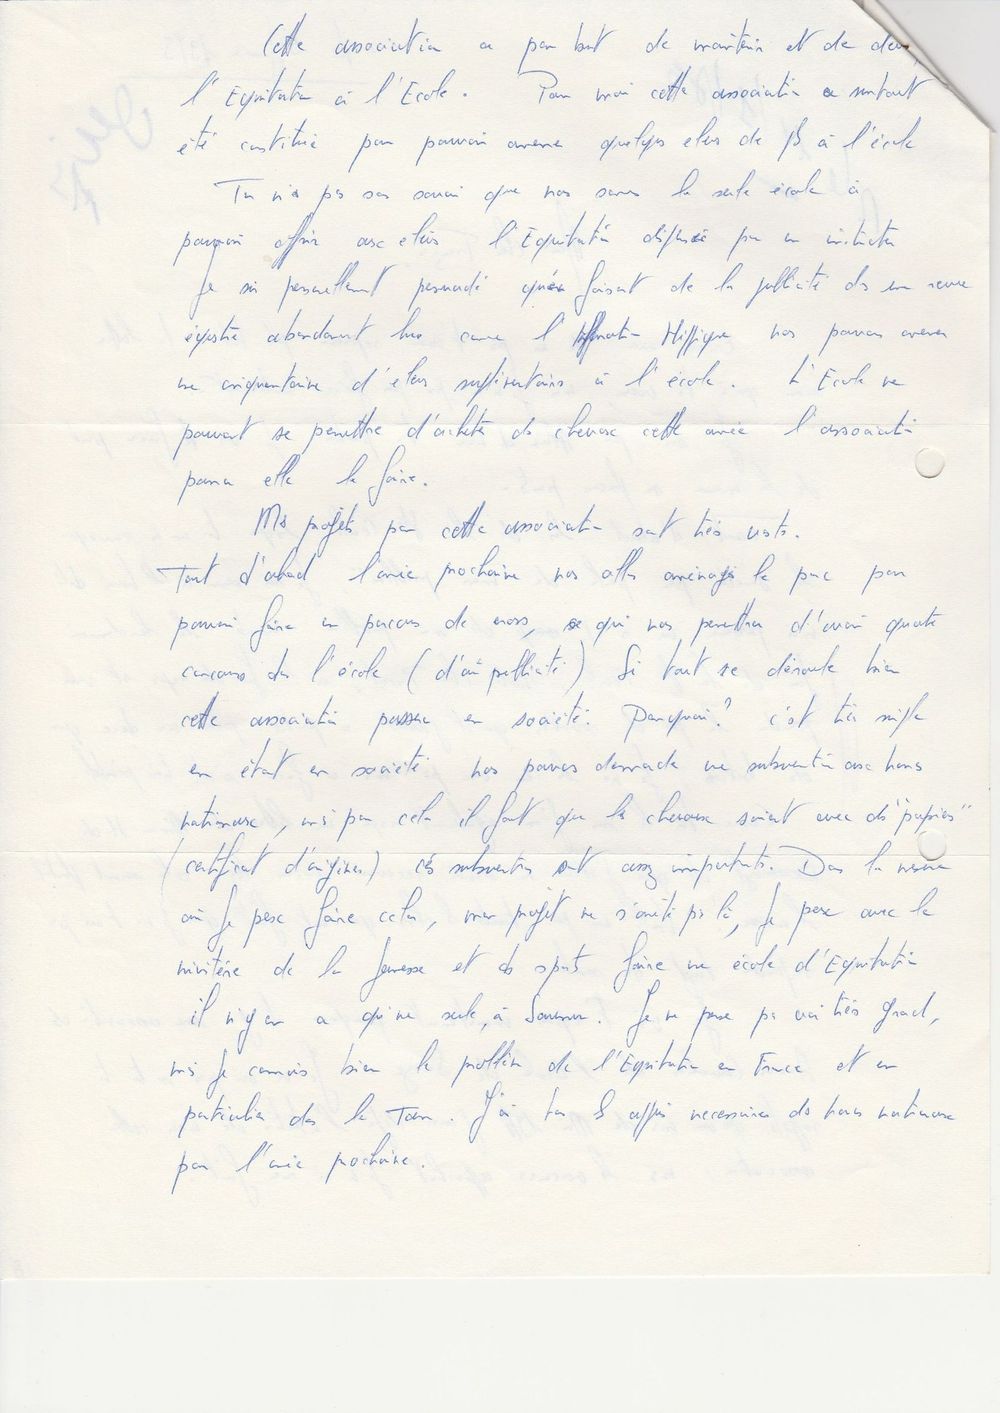 Cette association a pour but de maintenir et de
l'Equitation à l'Ecole. Pour moi cette association a surtout
été constituée pour pouvoir amener quelques eleves de à l'école
Tu n'es pas sans savoir que nous sommes la seule école à
pouvoir offrir aux eleves l'Equitation dispensée par un instructeur
Je suis personnellement persuadé qu'en faisant de la publicité ds une revue
équestre abondamment lue comme l'Information Hippique nous pouvons amener
une cinquantaine d'eleves supplémentaires à l'école. L'Ecole ne
pouvant se permettre d'acheter ds chevaux cette année l'association
pourra elle le faire.
Mes projets pour cette association sont très vastes.
Tout d'abord l'année prochaine nous allons aménager le parc pour
pouvoir faire un parcours de cross, ce qui nous permettra d'avoir quatre
concours ds l'école (d'où publicité) Si tout se déroule bien
cette association passera en société. Pourquoi? c'est très simple
en étant en société nous pouvons demander une subvention aux haras
nationaux, mais pour cela il faut que les chevaux soient avec ds "papiers"
(certificat d'origines) ces subventions sont assez importantes. Dans la mesure
où Je pense faire cela, mon projet ne s'arrête pas là, Je pense avec le
ministère de la Jeunesse et ds sports faire une école d'Equitation
il n'y en a qu'une seule, à Saumur. Je ne pense pas voir très grand,
mais Je connais bien le problème de l'Equitation en France et en
particulier dans le Tarn. J'ai tous les appuis necessaires ds haras nationaux
pour l'année prochaine.